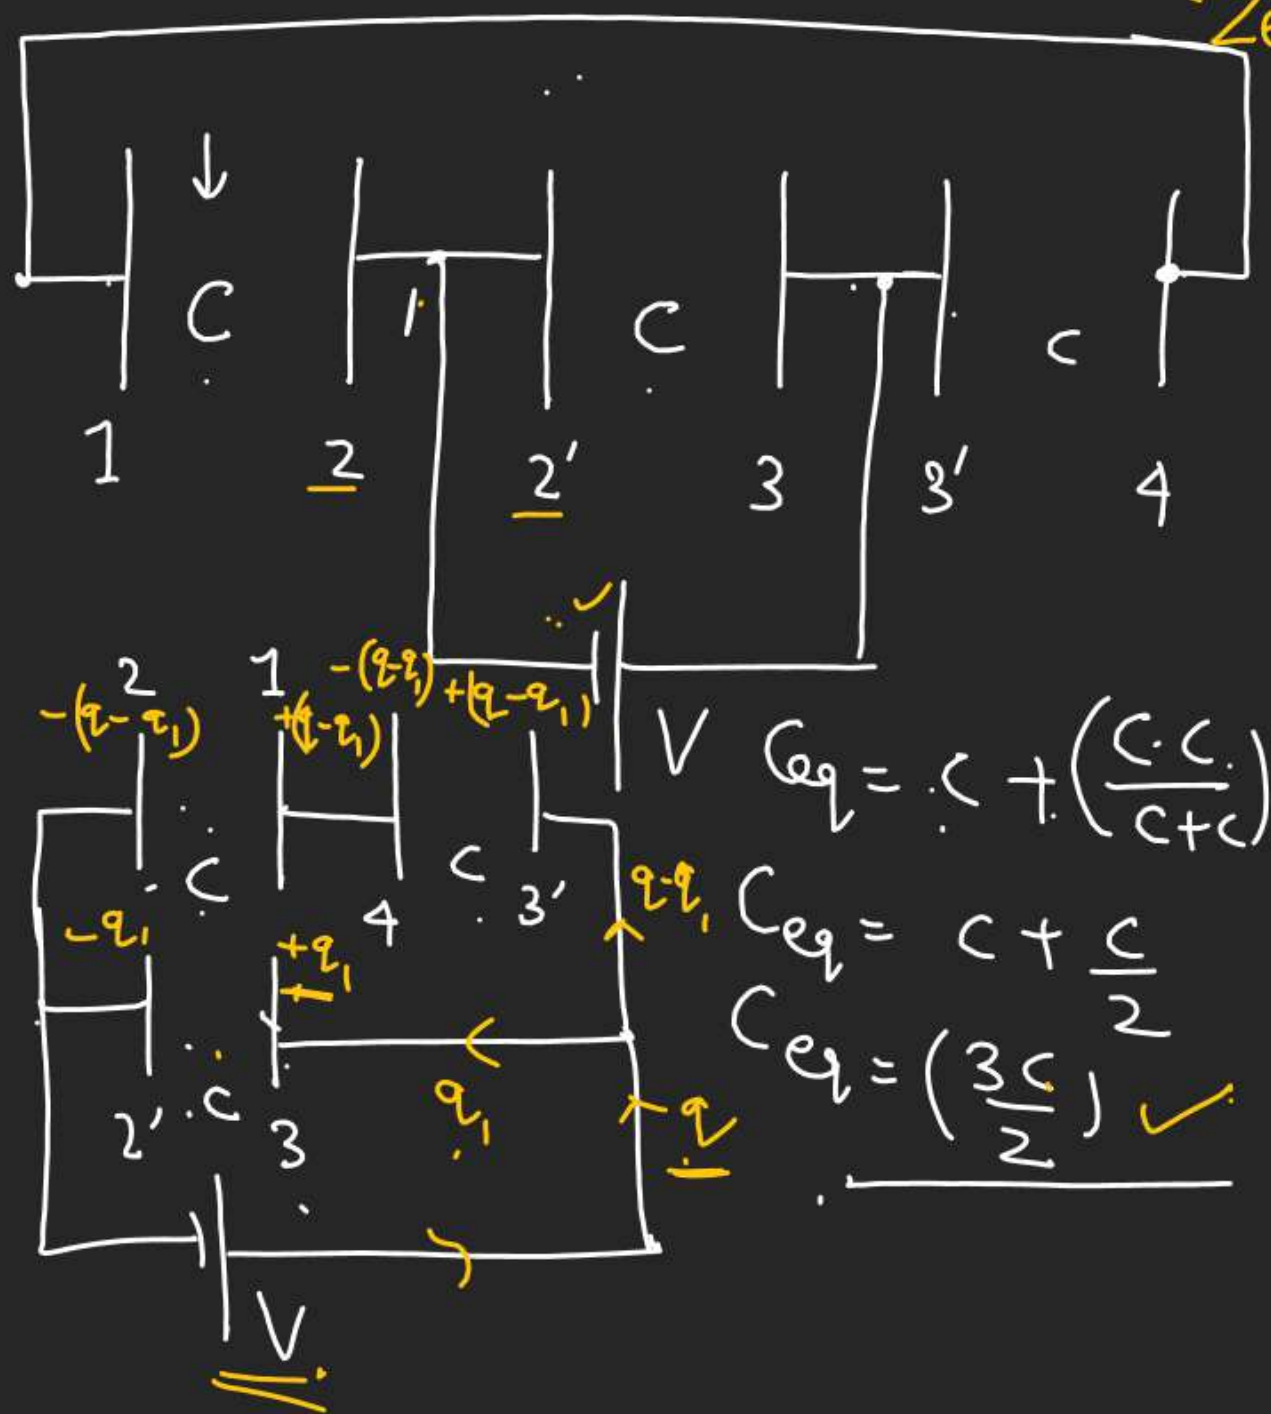 C
C
C
1
2
2'
3
3'
4
2
1
-(q-q₁)
+(q-q₁)
-(q-q₁)
+(q-q₁)
V
C
C
4
3'
-q₁
+q₁
q-q₁
2'
C
3
q₁
q
V
Ceq = C + (C.C./C+C)
Ceq = C + C/2
Ceq = (3C/2) ✓